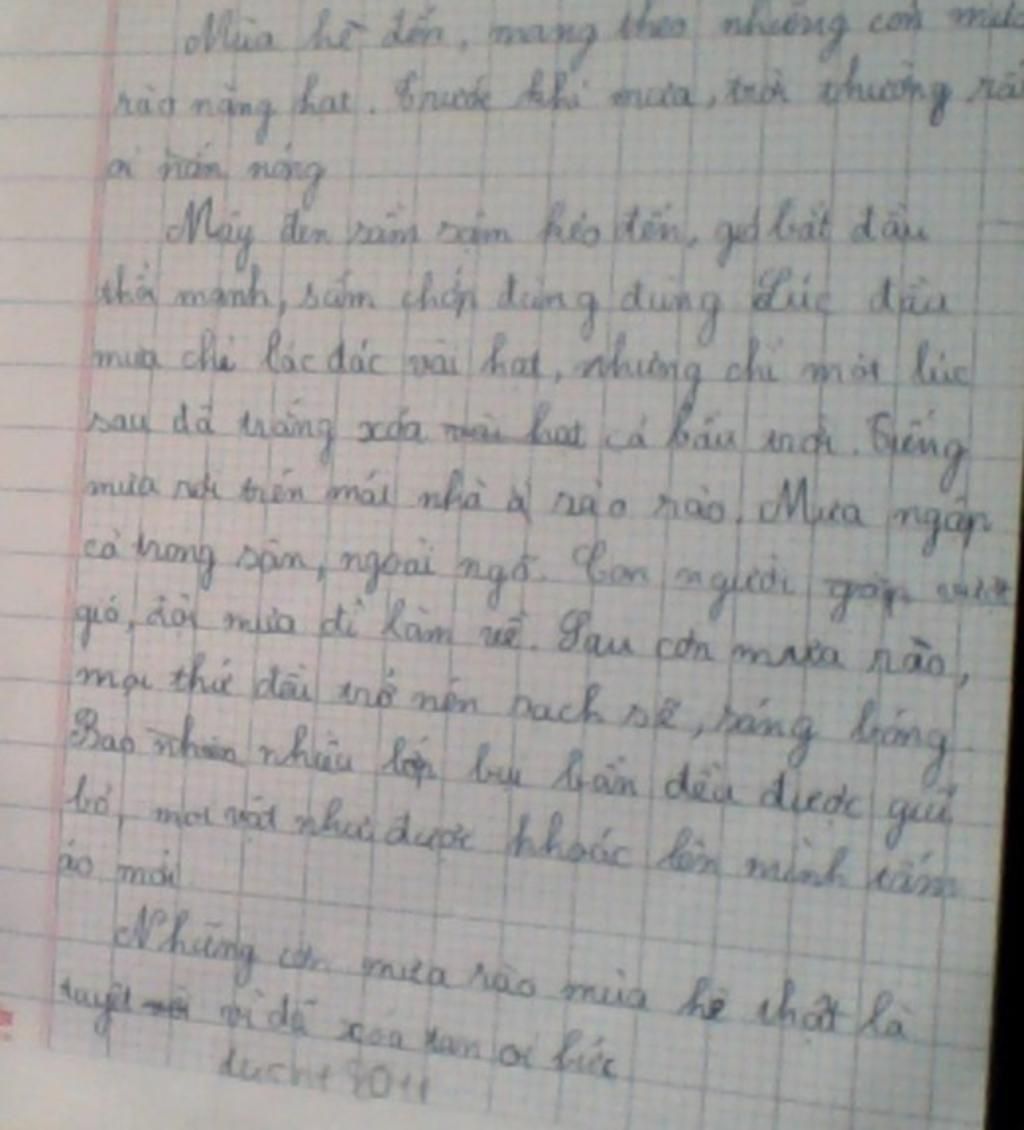 Mùa hè đến, mang theo những cơn mưa
rào nặng hạt. Trước khi mưa, trời thường rất
oi nóng
Mây đen sầm sậm kéo đến, gió bắt đầu
thổi mạnh, sấm chớp đùng đùng Lúc đầu
mưa chỉ lác đác vài hạt, nhưng chỉ một lúc
sau đã trắng xóa cả bầu trời. Tiếng
mưa rơi trên mái nhà rào rào. Mưa ngập
cả trong sân, ngoài ngõ. Con người
gió, đội mưa đi làm về. Sau cơn mưa rào,
mọi thứ đều trở nên sạch sẽ, sáng bóng
Bao nhiêu lớp bụi bẩn đều được gửi
bỏ, mọi vật như được khoác lên mình tấm
áo mới
Những cơn mưa rào mùa hè thật là
tuyệt vì đã xóa tan oi bức